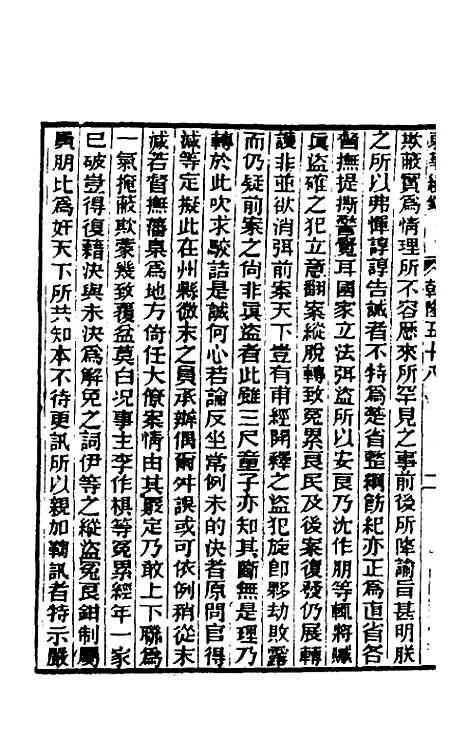 乾隆五十八
欺蔽實爲情理所不容歷來所罕見之事前後所降諭旨甚明朕
之所以弗憚諄諄告誡者不特爲楚省整綱飭紀亦正爲直省各
督撫提撕警覺耳國家立法弭盜所以安良乃沈作朋等輒將贓
眞盜確之犯立意翻案縱脫轉致冤累良民及後案復發仍展轉
護非並欲消弭前案天下豈有甫經開釋之盜犯旋即夥劫敗露
而仍疑前案之尙非眞盜者此雖三尺童子亦知其斷無是理乃
轉於此吹求駁詰是誠何心若論反坐常例未的決者原問官得
減等定擬此在州縣微末之員承辦偶爾舛誤或可依例稍從末
減若督撫藩臬爲地方倚任大僚案情由其嚴定乃敢上下聯爲
一氣掩蔽欺蒙幾致覆盆莫白况事主李作椇等冤累經年一家
已破豈得復藉決與未決爲解免之詞伊等之縱盜冤良鉗制屬
員朋比爲奸天下所共知本不待更訊所以親加鞫訊者特示嚴